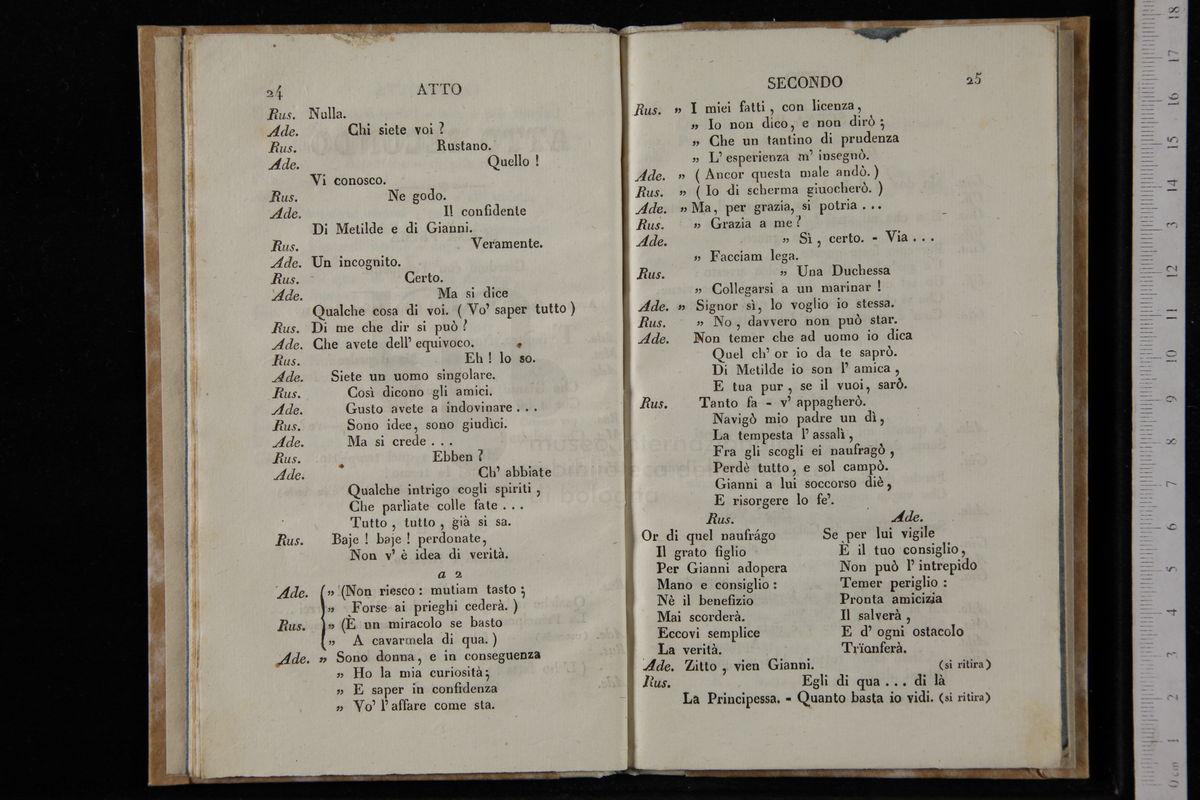 24 ATTO
Rus. Nulla.
Ade. Chi siete voi ?
Rus. Rustano.
Ade. Quello !
Vi conosco.
Rus. Ne godo.
Ade. Il confidente
Di Metilde e di Gianni.
Rus. Veramente.
Ade. Un incognito.
Rus. Certo.
Ade. Ma si dice
Qualche cosa di voi. ( Vo' saper tutto )
Rus. Di me che dir si può ?
Ade. Che avete dell' equivoco.
Rus. Eh ! lo so.
Ade. Siete un uomo singolare.
Rus. Così dicono gli amici.
Ade. Gusto avete a indovinare . . .
Rus. Sono idee, sono giudici.
Ade. Ma si crede . . .
Rus. Ebben ?
Ade. Ch' abbiate
Qualche intrigo cogli spiriti ,
Che parliate colle fate . . .
Tutto , tutto , già si sa.
Rus. Baje ! baje ! perdonate,
Non v' è idea di verità.
a 2
Ade. „ (Non riesco : mutiam tasto ;
„ Forse ai prieghi cederà. )
Rus. „ (È un miracolo se basto
„ A cavarmela di qua. )
Ade. „ Sono donna, e in conseguenza
„ Ho la mia curiosità ;
„ E saper in confidenza
„ Vo' l' affare come sta.
SECONDO 25
Rus. „ I miei fatti , con licenza ,
„ Io non dico, e non dirò ;
„ Che un tantino di prudenza
„ L' esperienza m' insegnò.
Ade. „ ( Ancor questa male andò. )
Rus. „ ( Io di scherma giuocherò. )
Ade. „ Ma, per grazia, si potria . . .
Rus. „ Grazia a me ?
Ade. „ Sì , certo. - Via . . .
„ Facciam lega.
Rus. „ Una Duchessa
„ Collegarsi a un marinar !
Ade. „ Signor sì, lo voglio io stessa.
Rus. „ No , davvero non può star.
Ade. Non temer che ad uomo io dica
Quel ch' or io da te saprò.
Di Metilde io son l' amica ,
E tua pur , se il vuoi, sarò.
Rus. Tanto fa - v' appagherò.
Navigò mio padre un dì,
La tempesta l' assalì ,
Fra gli scogli ei naufragò ,
Perdè tutto, e sol campò.
Gianni a lui soccorso diè,
E risorgere lo fe'.
Rus.
Or di quel naufrágo
Il grato figlio
Per Gianni adopera
Mano e consiglio :
Nè il benefizio
Mai scorderà.
Eccovi semplice
La verità.
Ade.
Se per lui vigile
È il tuo consiglio,
Non può l' intrepido
Temer periglio :
Pronta amicizia
Il salverà ,
E d' ogni ostacolo
Trïonferà.
Ade. Zitto , vien Gianni. (si ritira)
Rus. Egli di qua . . . di là
La Principessa. - Quanto basta io vidi. (si ritira)